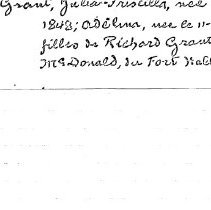 Grant, Julia-Priscilla, née
1848; Adélina, née le 11-
filles de Richard Grant
McDonald, du Fort Hall